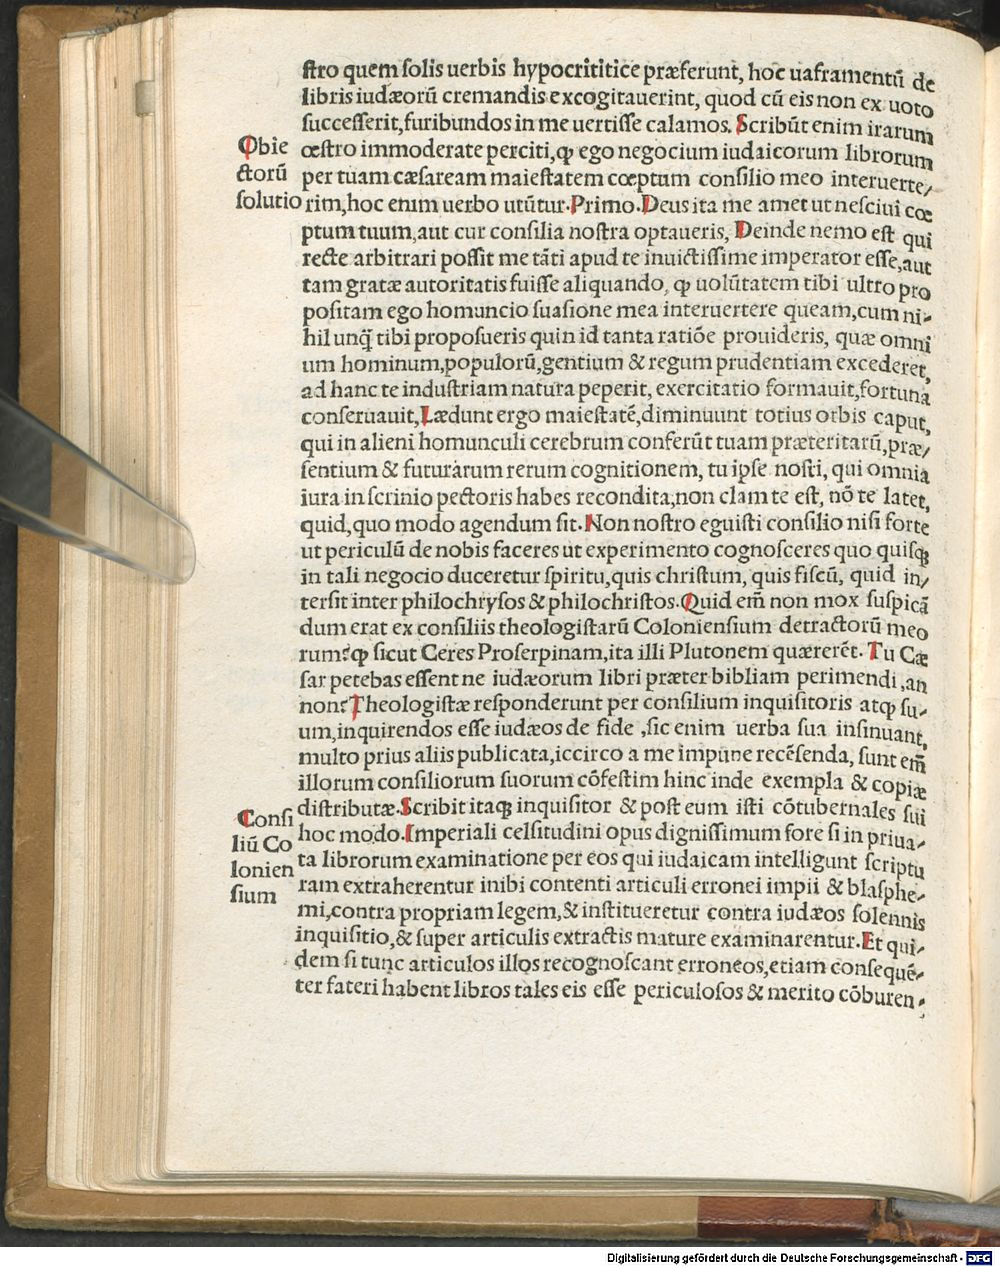 stro quem solis uerbis hypocrititice præferunt, hoc uaframentũ de
libris iudæorũ cremandis excogitauerint, quod cũ eis non ex uoto
successerit,furibundos in me uertisse calamos. Scribũt enim irarum
Obie
ctorũ
solutio
œstro immoderate perciti,ꝙ ego negocium iudaicorum librorum
per tuam cæsaream maiestatem cœptum consilio meo interuerte/
rim,hoc enim uerbo utũtur.Primo.Deus ita me amet ut nesciui cœ
ptum tuum,aut cur consilia nostra optaueris, Deinde nemo est qui
recte arbitrari possit me tãti apud te inuictissime imperator esse,aut
tam gratæ autoritatis fuisse aliquando, ꝙ uolũtatem tibi ultro pro
positam ego homuncio suasione mea interuertere queam,cum ni-
hil unq̃ tibi proposueris quin id tanta ratiõe prouideris, quæ omni
um hominum,populorũ,gentium & regum prudentiam excederet,
ad hanc te industriam natura peperit, exercitatio formauit,fortuna
conseruauit,Lædunt ergo maiestatẽ,diminuunt totius orbis caput,
qui in alieni homunculi cerebrum conferũt tuam præteritarũ,præ/
sentium & futurarum rerum cognitionem, tu ipse nosti, qui omnia
iura in scrinio pectoris habes recondita,non clam te est, nõ te latet,
quid,quo modo agendum sit.Non nostro eguisti consilio nisi forte
ut periculũ de nobis faceres ut experimento cognosceres quo quisqꝫ
in tali negocio duceretur spiritu,quis christum, quis fiscũ, quid in/
tersit inter philochrysos & philochristos.Quid em̃ non mox suspicã
dum erat ex consiliis theologistarũ Coloniensium detractorũ meo
rum?ꝙ sicut Ceres Proserpinam,ita illi Plutonem quærerẽt. Tu Cæ
sar petebas essent ne iudæorum libri præter bibliam perimendi,an
non?Theologistæ responderunt per consilium inquisitoris atqꝫ su-
um,inquirendos esse iudæos de fide ,sic enim uerba sua insinuant,
multo prius aliis publicata,iccirco a me impune recẽsenda, sunt em̃
illorum consiliorum suorum cõfestim hinc inde exempla & copiæ
distributæ.Scribit itaqꝫ inquisitor & post eum isti cõtubernales sui
Consi
liũ Co
lonien
sium
hoc modo.Imperiali celsitudini opus dignissimum fore si in priua-
ta librorum examinatione per eos qui iudaicam intelligunt scriptu
ram extraherentur inibi contenti articuli erronei impii & blasphe-
mi,contra propriam legem,& institueretur contra iudæos solennis
inquisitio,& super articulis extractis mature examinarentur.Et qui-
dem si tunc articulos illos recognoscant erroneos,etiam consequẽ-
ter fateri habent libros tales eis esse periculosos & merito cõburen-
Digitalisierung gefördert durch die Deutsche Forschungsgemeinschaft - DFG